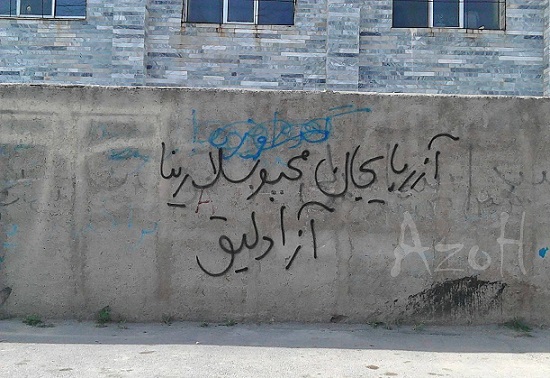 آذربایجان محبوسلارینا
آزادلیق
AzoH